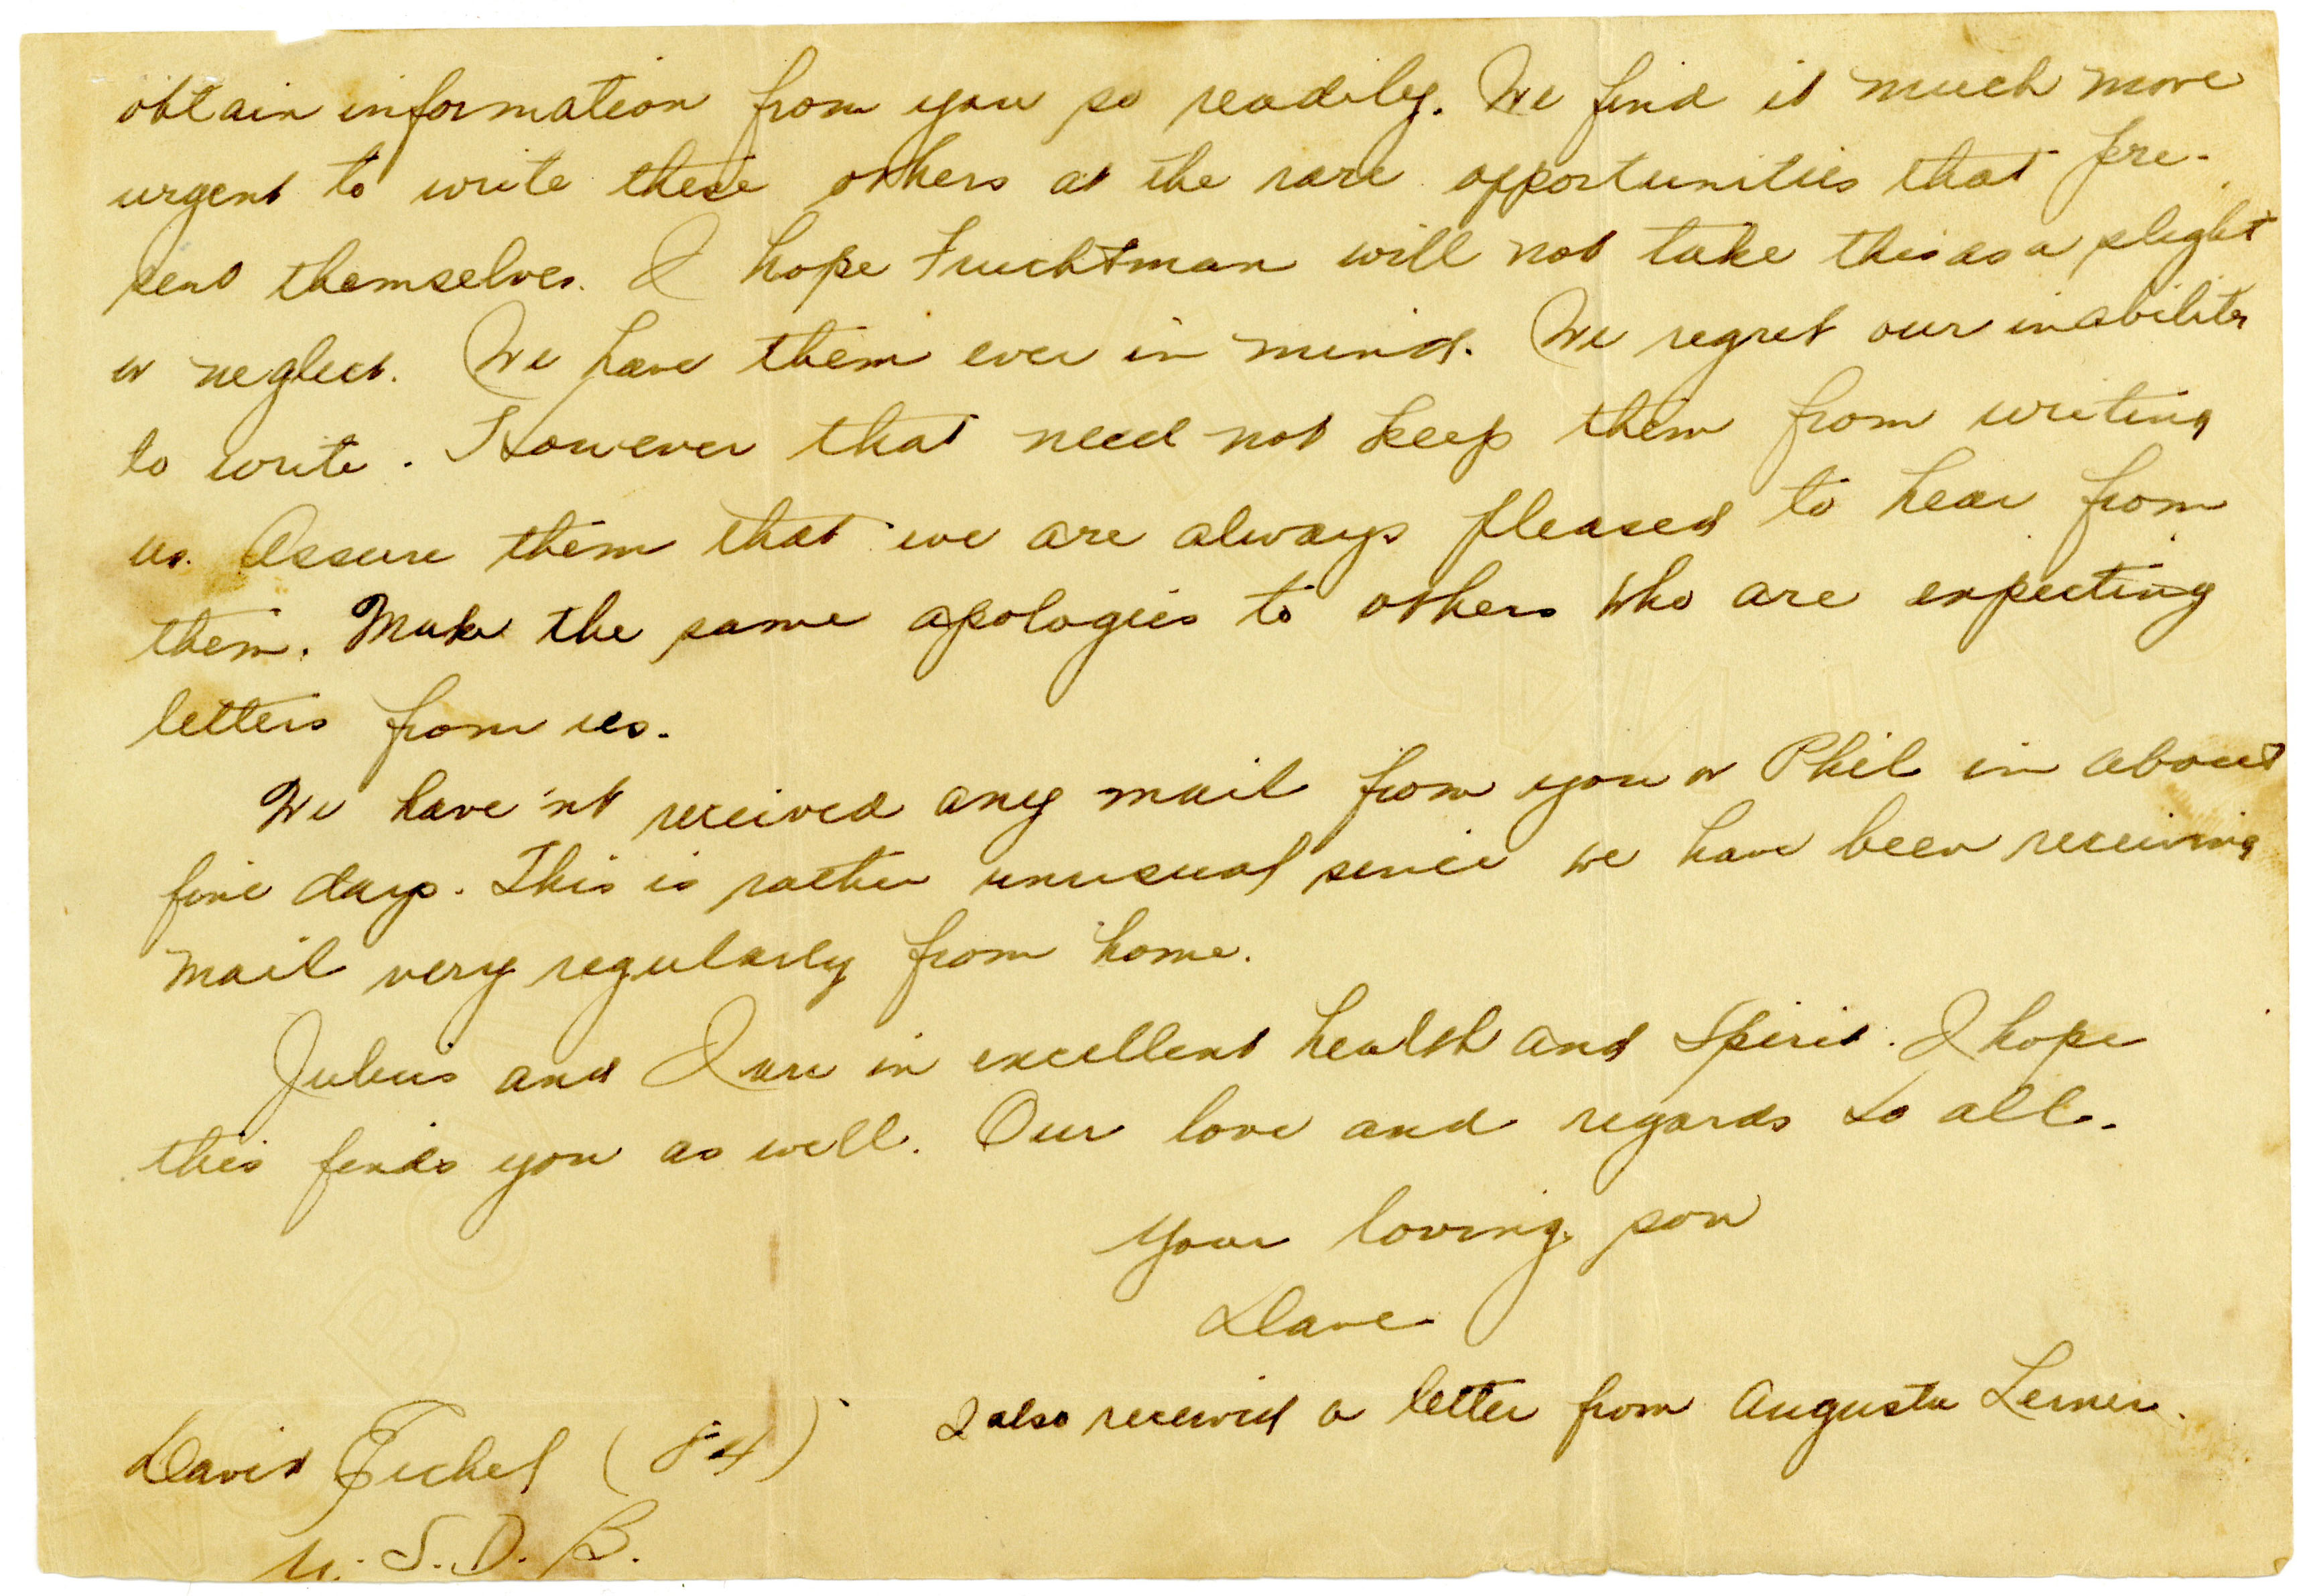 obtain information from you so readily. We find it much more
urgent to write these others at the rare opportunities that pre-
sent themselves. I hope Fruchtman will not take this as a slight
or neglect. We have them ever in mind. We regret our inability
to write. However that need not keep them from writing
us. Assure them that we are always pleased to hear from
them. Make the same apologies to others who are expecting
letters from us.
We have'nt received any mail from you or Phil in about
five days. This is rather unusual since we have been receiving
mail very regularly from home.
Julius and I are in excellent health and spirit. I hope
this finds you as well. Our love and regards to all.
Your loving son
Dave
I also received a letter from Augusta Lerner.
David Eichel (84)
U.S.D.B.